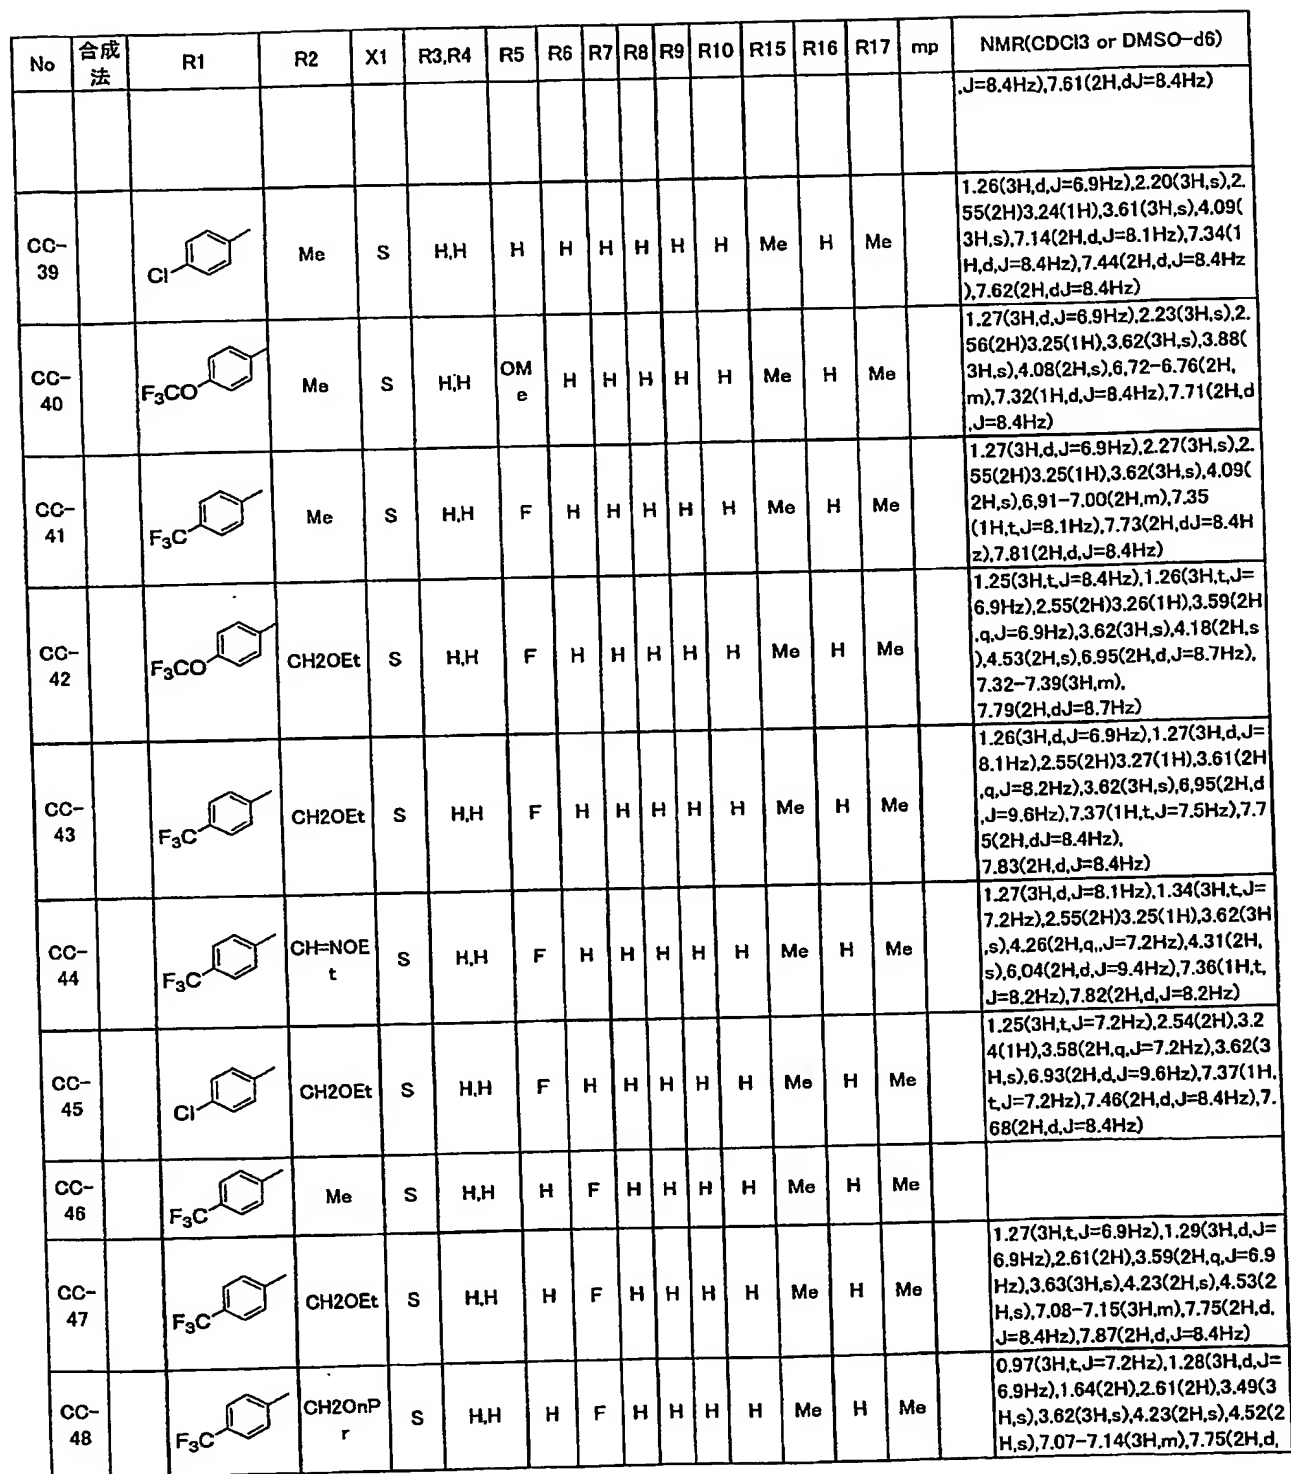 No 合成法 R1 R2 X1 R3,R4 R5 R6 R7 R8 R9 R10 R15 R16 R17 mp NMR(CDCl3 or DMSO-d6)
,J=8.4Hz),7.61(2H,dJ=8.4Hz)
CC-39 Cl Me S H,H H H H H H H Me H Me
1.26(3H,d,J=6.9Hz),2.20(3H,s),2.
55(2H)3.24(1H),3.61(3H,s),4.09(
3H,s),7.14(2H,d,J=8.1Hz),7.34(1
H,d,J=8.4Hz),7.44(2H,d,J=8.4Hz
),7.62(2H,dJ=8.4Hz)
CC-40 F3CO Me S H,H OMe H H H H H Me H Me
1.27(3H,d,J=6.9Hz),2.23(3H,s),2.
56(2H)3.25(1H),3.62(3H,s),3.88(
3H,s),4.08(2H,s),6,72-6.76(2H,
m),7.32(1H,d,J=8.4Hz),7.71(2H,d
,J=8.4Hz)
CC-41 F3C Me S H,H F H H H H H Me H Me
1.27(3H,d,J=6.9Hz),2.27(3H,s),2.
55(2H)3.25(1H),3.62(3H,s),4.09(
2H,s),6,91-7.00(2H,m),7.35
(1H,t,J=8.1Hz),7.73(2H,dJ=8.4H
z),7.81(2H,d,J=8.4Hz)
CC-42 F3CO CH2OEt S H,H F H H H H H Me H Me
1.25(3H,t,J=8.4Hz),1.26(3H,t,J=
6.9Hz),2.55(2H)3.26(1H),3.59(2H
,q,J=6.9Hz),3.62(3H,s),4.18(2H,s
),4.53(2H,s),6.95(2H,d,J=8.7Hz),
7.32-7.39(3H,m),
7.79(2H,dJ=8.7Hz)
CC-43 F3C CH2OEt S H,H F H H H H H Me H Me
1.26(3H,d,J=6.9Hz),1.27(3H,d,J=
8.1Hz),2.55(2H)3.27(1H),3.61(2H
,q,J=8.2Hz),3.62(3H,s),6,95(2H,d
,J=9.6Hz),7.37(1H,t,J=7.5Hz),7.7
5(2H,dJ=8.4Hz),
7.83(2H,d,J=8.4Hz)
CC-44 F3C CH=NOEt S H,H F H H H H H Me H Me
1.27(3H,d,J=8.1Hz),1.34(3H,t,J=
7.2Hz),2.55(2H)3.25(1H),3.62(3H
,s),4.26(2H,q,,J=7.2Hz),4.31(2H,
s),6,04(2H,d,J=9.4Hz),7.36(1H,t,
J=8.2Hz),7.82(2H,d,J=8.2Hz)
CC-45 Cl CH2OEt S H,H F H H H H H Me H Me
1.25(3H,t,J=7.2Hz),2.54(2H),3.2
4(1H),3.58(2H,q,J=7.2Hz),3.62(3
H,s),6.93(2H,d,J=9.6Hz),7.37(1H,
t,J=7.2Hz),7.46(2H,d,J=8.4Hz),7.
68(2H,d,J=8.4Hz)
CC-46 F3C Me S H,H H F H H H H Me H Me
CC-47 F3C CH2OEt S H,H H F H H H H Me H Me
1.27(3H,t,J=6.9Hz),1.29(3H,d,J=
6.9Hz),2.61(2H),3.59(2H,q,J=6.9
Hz),3.63(3H,s),4.23(2H,s),4.53(2
H,s),7.08-7.15(3H,m),7.75(2H,d,
J=8.4Hz),7.87(2H,d,J=8.4Hz)
CC-48 F3C CH2OnPr S H,H H F H H H H Me H Me
0.97(3H,t,J=7.2Hz),1.28(3H,d,J=
6.9Hz),1.64(2H),2.61(2H),3.49(3
H,s),3.62(3H,s),4.23(2H,s),4.52(2
H,s),7.07-7.14(3H,m),7.75(2H,d,